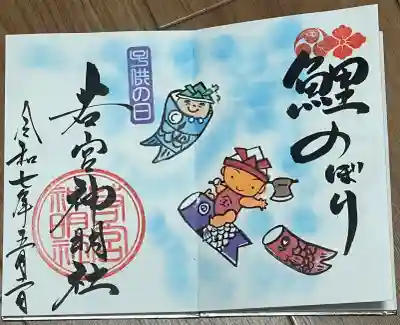 鯉のぼり
子供の日
若宮神明社
令和七年五月二日
若宮神明社